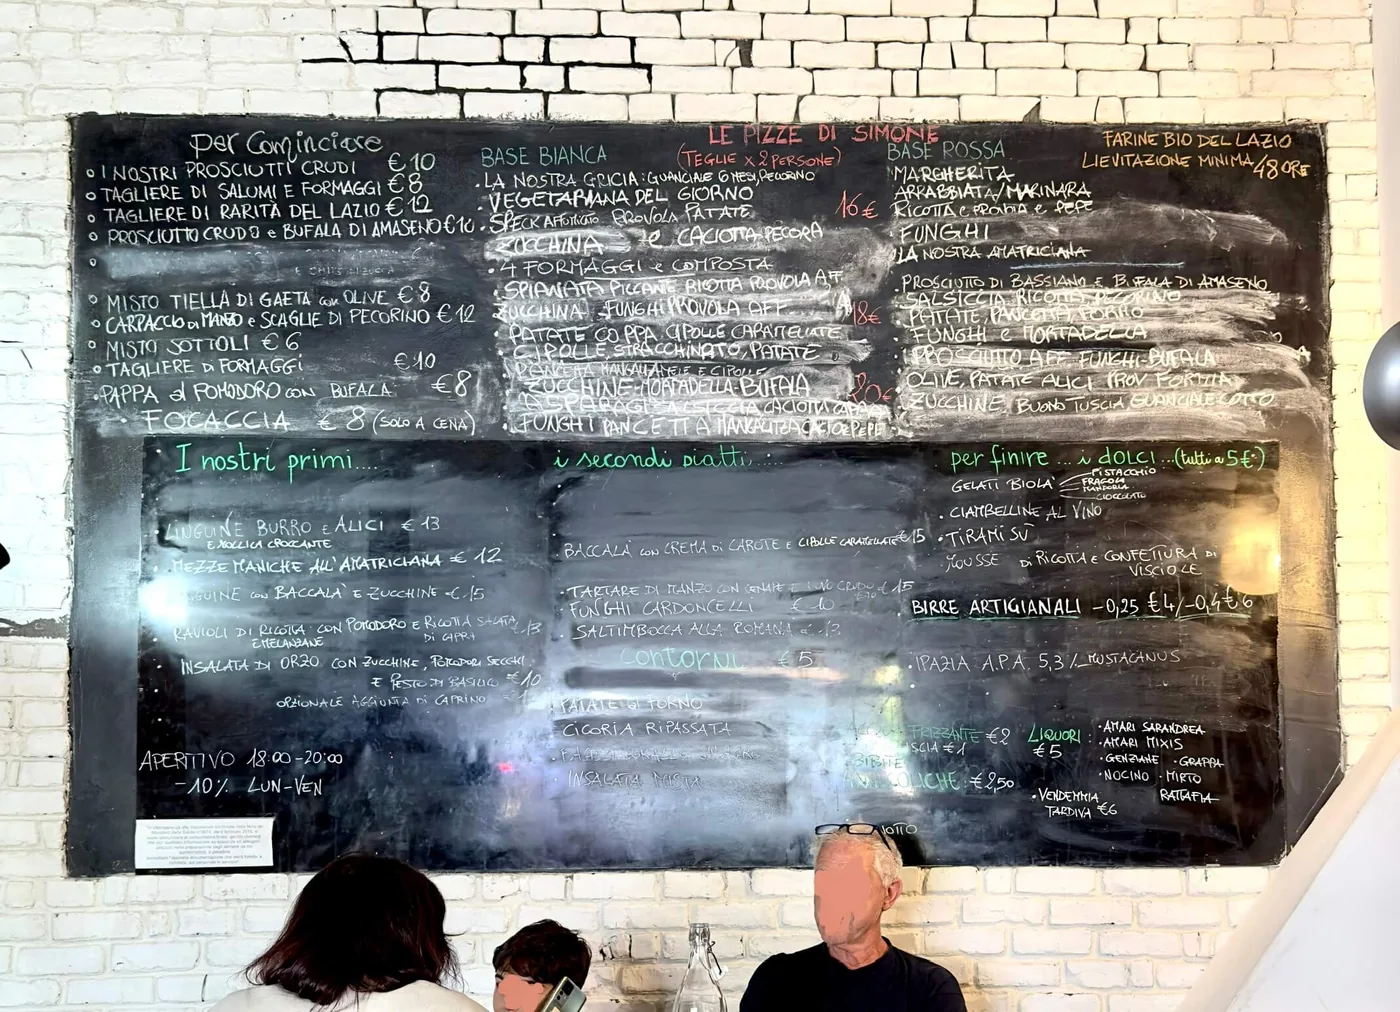 per Cominciare
I NOSTRI PROSCIUTTI CRUDI €10
TAGLIERE DI SALUMI E FORMAGGI €8
TAGLIERE DI RARITÀ DEL LAZIO €12
PROSCIUTTO CRUDO e BUFALA DI AMASENO €10
MISTO TIELLA DI GAETA con OLIVE €8
CARPACCIO di MANZO e SCAGLIE DI PECORINO €12
MISTO SOTTOLI €6
TAGLIERE di FORMAGGI €10
PAPPA al POMODORO con BUFALA €8
FOCACCIA €8 (SOLO A CENA)
LE PIZZE DI SIMONE
(TEGLIE x 2 PERSONE)
BASE BIANCA
LA NOSTRA GRICIA: GUANCIALE 6 MESI, PECORINO
VEGETARIANA DEL GIORNO
SPECK AFFUMICATO PROVOLA PATATE
16€
ZUCCHINA e CACIOTTA PECORA
4 FORMAGGI e COMPOSTA
SPIANATA PICCANTE RICOTTA PROVOLA AFF.
ZUCCHINA FUNGHI PROVOLA AFF
18€
PATATE COPPA CIPOLLE CARAMELLATE
CIPOLLE, STRACCHINATO, PATATE
PANCETTA E CIPOLLE
ZUCCHINE-MORTADELLA-BUFALA
20€
ASPARAGI SALSICCIA CACIOTTA CAPRA
FUNGHI PANCETTA MANGALITZA CACIO e PEPE
BASE ROSSA
MARGHERITA
ARRABBIATA/MARINARA
RICOTTA e PROVOLA e PEPE
FUNGHI
LA NOSTRA AMATRICIANA
PROSCIUTTO DI BASSIANO E BUFALA DI AMASENO
SALSICCIA RICOTTA PECORINO
PATATE, PANCETTA, PORRO
FUNGHI e MORTADELLA
PROSCIUTTO AFF FUNGHI-BUFALA
OLIVE, PATATE ALICI PROV FORMIA
ZUCCHINE, BUONO TUSCIA, GUANCIALE COTTO
FARINE BIO DEL LAZIO
LIEVITAZIONE MINIMA 48 ORE
I nostri primi....
LINGUINE BURRO e ALICI €13
E MOLLICA CROCCANTE
MEZZE MANICHE ALL'AMATRICIANA €12
CON BACCALÀ E ZUCCHINE €15
RAVIOLI DI RICOTTA CON POMODORO E RICOTTA SALATA 13
E MELANZANE DI CAPRA
INSALATA DI ORZO CON ZUCCHINE, POMODORI SECCHI
E PESTO DI BASILICO €10
OPZIONALE AGGIUNTA DI CAPRINO
APERITIVO 18:00-20:00
-10% LUN-VEN
i secondi piatti......
BACCALÀ con CREMA di CAROTE E CIPOLLE CARAMELLATE €15
TARTARE DI MANZO CON SENAPE E UOVO CRUDO € 15
FUNGHI CARDONCELLI €10
SALTIMBOCCA ALLA ROMANA € 13
Contorni €5
PATATE al FORNO
CICORIA RIPASSATA
INSALATA MISTA
per finire ... i DOLCI ... (tutti a 5€)
GELATI BIOLÀ PISTACCHIO
FRAGOLA
MANDORLA
CIOCCOLATO
CIAMBELLINE AL VINO
TIRAMISÙ
MOUSSE DI RICOTTA E CONFETTURA DI
VISCIOLE
BIRRE ARTIGIANALI -0,25 €4/-0,4 €6
IPAZIA A.P.A. 5,3% MUSTACANUS
FRIZZANTE €2
LISCIA €1
BIBITE
€2,50
LIQUORI:
€5
AMARI SARANDREA
AMARI MIXIS
GENZIANE · GRAPPA
NOCINO · MIRTO
RATTAFIA
VENDEMMIA
TARDIVA €6